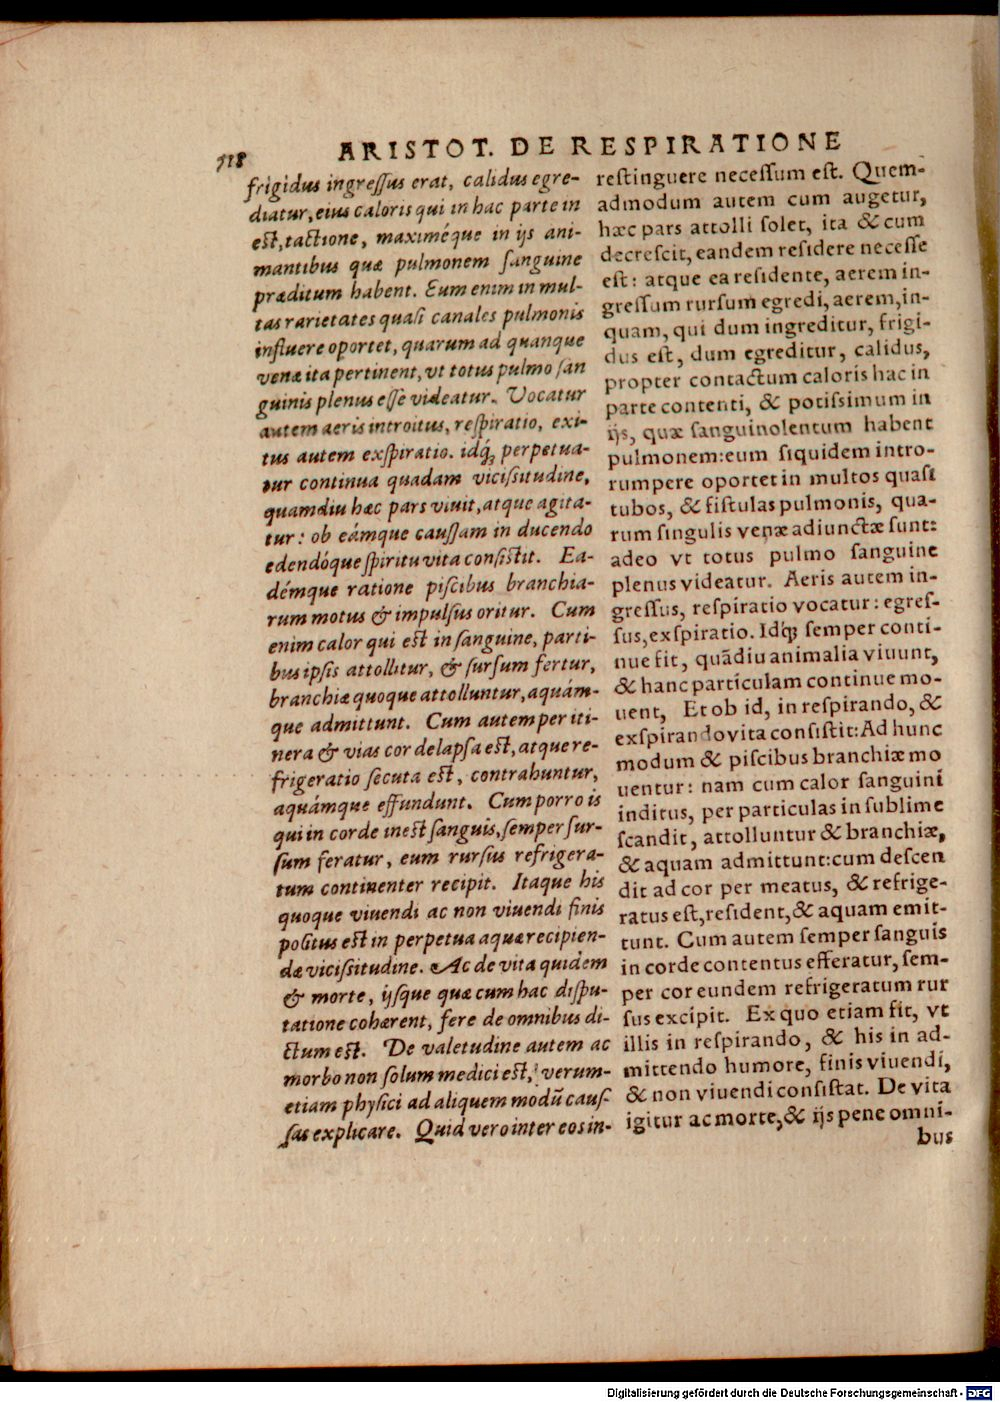 118
ARISTOT. DE RESPIRATIONE
frigidus ingreſſus erat, calidus egre-
diatur, eius caloris qui in hac parte in
eſt, tactione, maximéque in ijs ani-
mantibus quæ pulmonem ſanguine
præditum habent. Eum enim in mul-
tas rarietates quaſi canales pulmonis
influere oportet, quarum ad quanque
venæ ita pertinent, vt totus pulmo ſan
guinis plenus eſſe videatur. Vocatur
autem aeris introitus, reſpiratio, exi-
tus autem exſpiratio. idq́ꝫ perpetua-
tur continua quadam viciſsitudine,
quamdiu hæc pars viuit, atque agita-
tur: ob eámque cauſſam in ducendo
edendóque ſpiritu vita conſiſtit. Ea-
démque ratione piſcibus branchia-
rum motus & impulſus oritur. Cum
enim calor qui eſt in ſanguine, parti-
bus ipſis attollitur, & ſurſum fertur,
branchiæ quoque attolluntur, aquám-
que admittunt. Cum autem per iti-
nera & vias cor delapſa eſt, atque re-
frigeratio ſecuta eſt, contrahuntur,
aquámque effundunt. Cum porro is
qui in corde ineſt ſanguis, ſemper ſur-
ſum feratur, eum rurſus refrigera-
tum continenter recipit. Itaque his
quoque viuendi ac non viuendi finis
poſitus eſt in perpetua aquæ recipien-
dæ viciſsitudine. Ac de vita quidem
& morte, ijſque quæ cum hac diſpu-
tatione cohærent, fere de omnibus di-
ctum eſt. De valetudine autem ac
morbo non ſolum medici eſt, verum-
etiam phyſici ad aliquem modū cauſ-
ſas explicare. Quid vero inter eos in-
reſtinguere neceſſum eſt. Quem-
admodum autem cum augetur,
hæc pars attolli ſolet, ita & cum
decreſcit, eandem reſidere neceſſe
eſt: atque ea reſidente, aerem in-
greſſum rurſum egredi, aerem, in-
quam, qui dum ingreditur, frigi-
dus eſt, dum egreditur, calidus,
propter contactum caloris hac in
parte contenti, & potiſsimum in
ijs, quæ ſanguinolentum habent
pulmonem: eum ſiquidem intro-
rumpere oportet in multos quaſi
tubos, & fiſtulas pulmonis, qua-
rum ſingulis venæ adiunctæ ſunt:
adeo vt totus pulmo ſanguine
plenus videatur. Aeris autem in-
greſſus, reſpiratio vocatur: egreſ-
ſus, exſpiratio. Idq́ꝫ ſemper conti-
nue fit, quādiu animalia viuunt,
& hanc particulam continue mo-
uent, Et ob id, in reſpirando, &
exſpirando vita conſiſtit: Ad hunc
modum & piſcibus branchiæ mo
uentur: nam cum calor ſanguini
inditus, per particulas in ſublime
ſcandit, attolluntur & branchiæ,
& aquam admittunt: cum deſcen
dit ad cor per meatus, & refrige-
ratus eſt, reſident, & aquam emit-
tunt. Cum autem ſemper ſanguis
in corde contentus efferatur, ſem-
per cor eundem refrigeratum rur
ſus excipit. Ex quo etiam fit, vt
illis in reſpirando, & his in ad-
mittendo humore, finis viuendi,
& non viuendi conſiſtat. De vita
igitur ac morte, & ijs pene omni-
bus
Digitalisierung gefördert durch die Deutsche Forschungsgemeinschaft - DFG